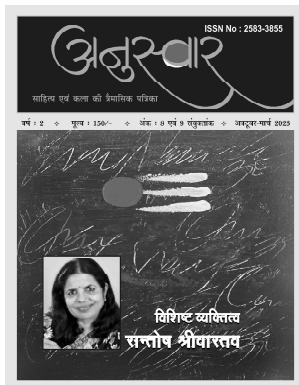 ISSN No : 2583-3855
अनुस्वार
साहित्य एवं कला की त्रैमासिक पत्रिका
वर्ष : 2 ✧ मूल्य : 150/– ✧ अंक : 8 एवं 9 संयुक्तांक ✧ अक्टूबर-मार्च 2023
विशिष्ट व्यक्तित्व
सन्तोष श्रीवास्तव